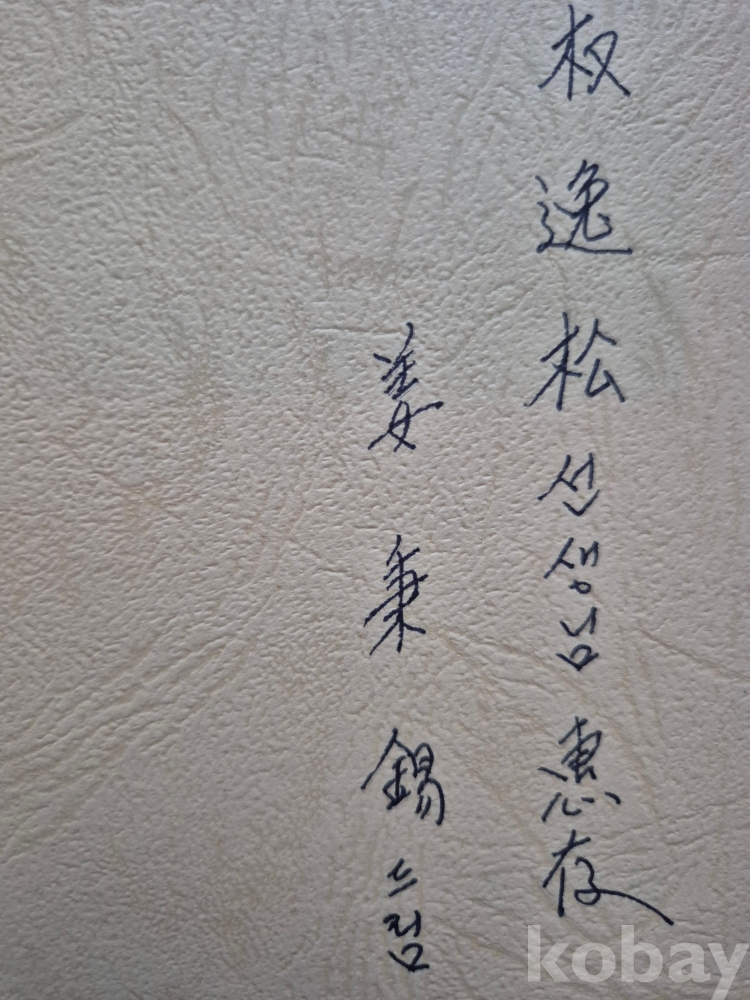 权逸松 선생님 惠存
姜秉錫 드림
kobay